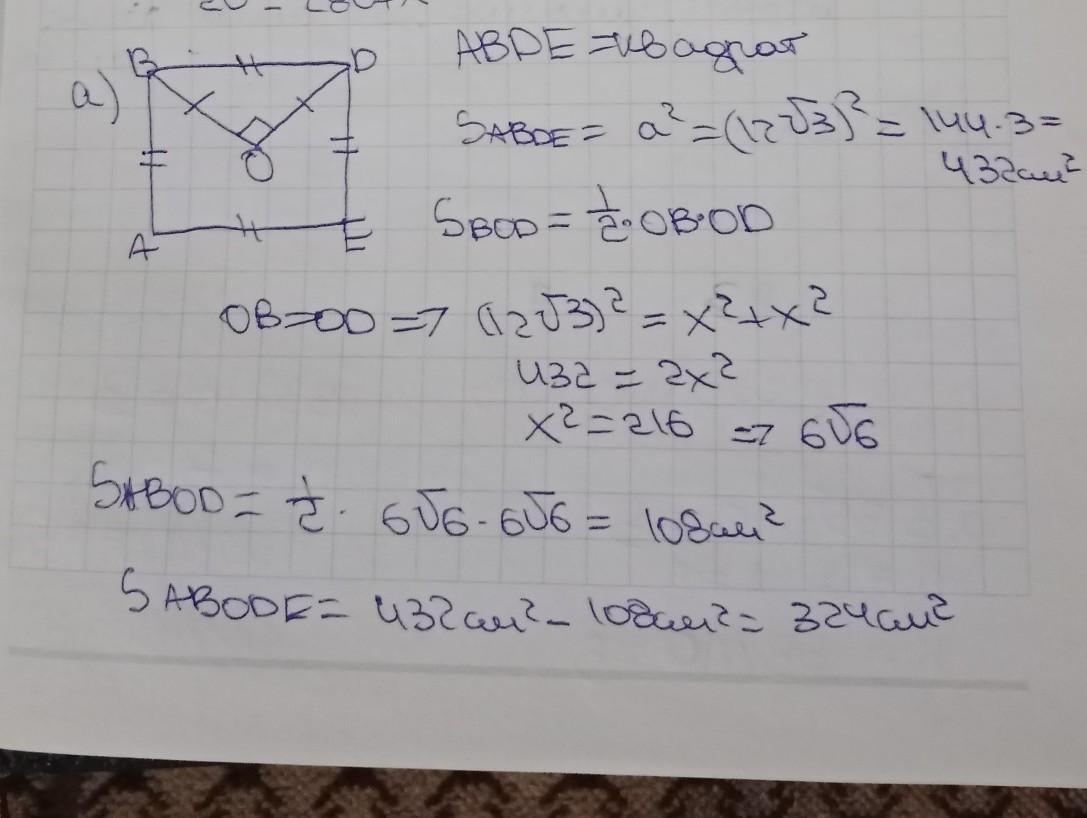 а)
B
D
O
A
E
ABDE = квадрат
SABDE = a² = (12√3)² = 144·3 =
432см²
SBOD = 1/2·OB·OD
OB=OD => (12√3)² = x²+x²
432 = 2x²
x² = 216 => 6√6
SABOD = 1/2· 6√6 · 6√6 = 108см²
SABODE = 432см² - 108см² = 324см²